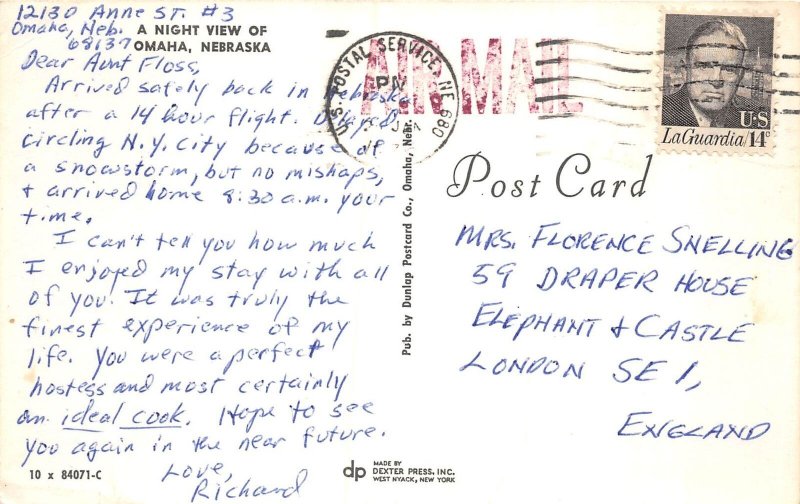 12130 Anne St. #3
Omaha, Neb.
68137
A NIGHT VIEW OF
OMAHA, NEBRASKA
Dear Aunt Floss,
Arrived safely back in Nebraska
after a 14 hour flight. Delayed
circling N.Y. City because of
a snowstorm, but no mishaps,
+ arrived home 8:30 a.m. your
time.
I can't tell you how much
I enjoyed my stay with all
of you. It was truly the
finest experience of my
life. You were a perfect
hostess and most certainly
an ideal cook. Hope to see
you again in the near future.
Love,
Richard
10 x 84071-C
Pub. by Dunlap Postcard Co., Omaha, Nebr.
dp
MADE BY
DEXTER PRESS, INC.
WEST NYACK, NEW YORK
AIR MAIL
U.S. POSTAL SERVICE, NE 680
PM
US
LaGuardia 14c
Post Card
MRS. FLORENCE SNELLING
59 DRAPER HOUSE
ELEPHANT + CASTLE
LONDON SE 1,
ENGLAND